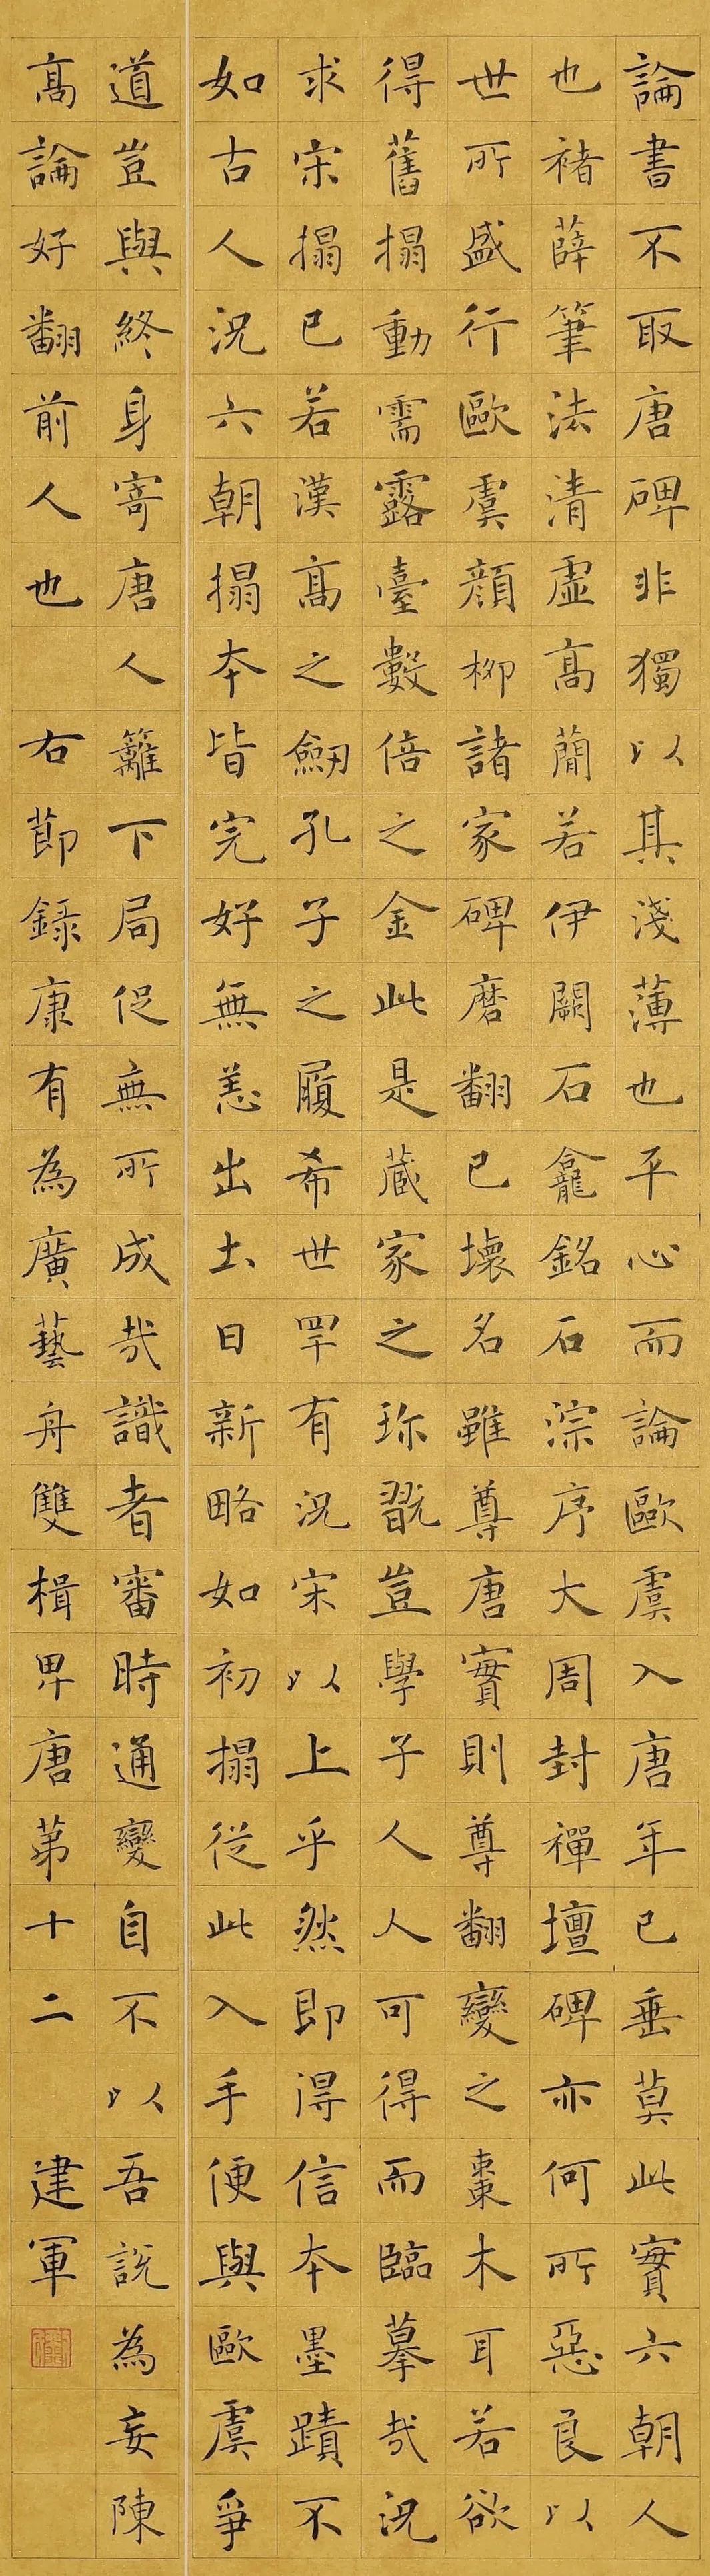 論書不取唐碑非獨以其淺薄也平心而論歐虞入唐年已垂莫此實六朝人
也褚薛筆法清虛高簡若伊闕石龕銘石淙序大周封禪壇碑亦何所惡良以
世所盛行歐虞顔柳諸家碑磨翻已壞名雖尊唐實則尊翻變之棗木耳若欲
得舊搨動需露臺數倍之金此是藏家之珎翫豈學子人人可得而臨摹哉況
求宋搨已若漢高之劒孔子之履希世罕有況宋以上乎然即得信本墨蹟不
如古人況六朝搨本皆完好無恙出土日新略如初搨從此入手便與歐虞爭
道豈與終身寄唐人籬下局促無所成哉識者審時通變自不以吾說為妄陳
高論好翻前人也 右節錄康有為廣藝舟雙楫卑唐第十二 建軍